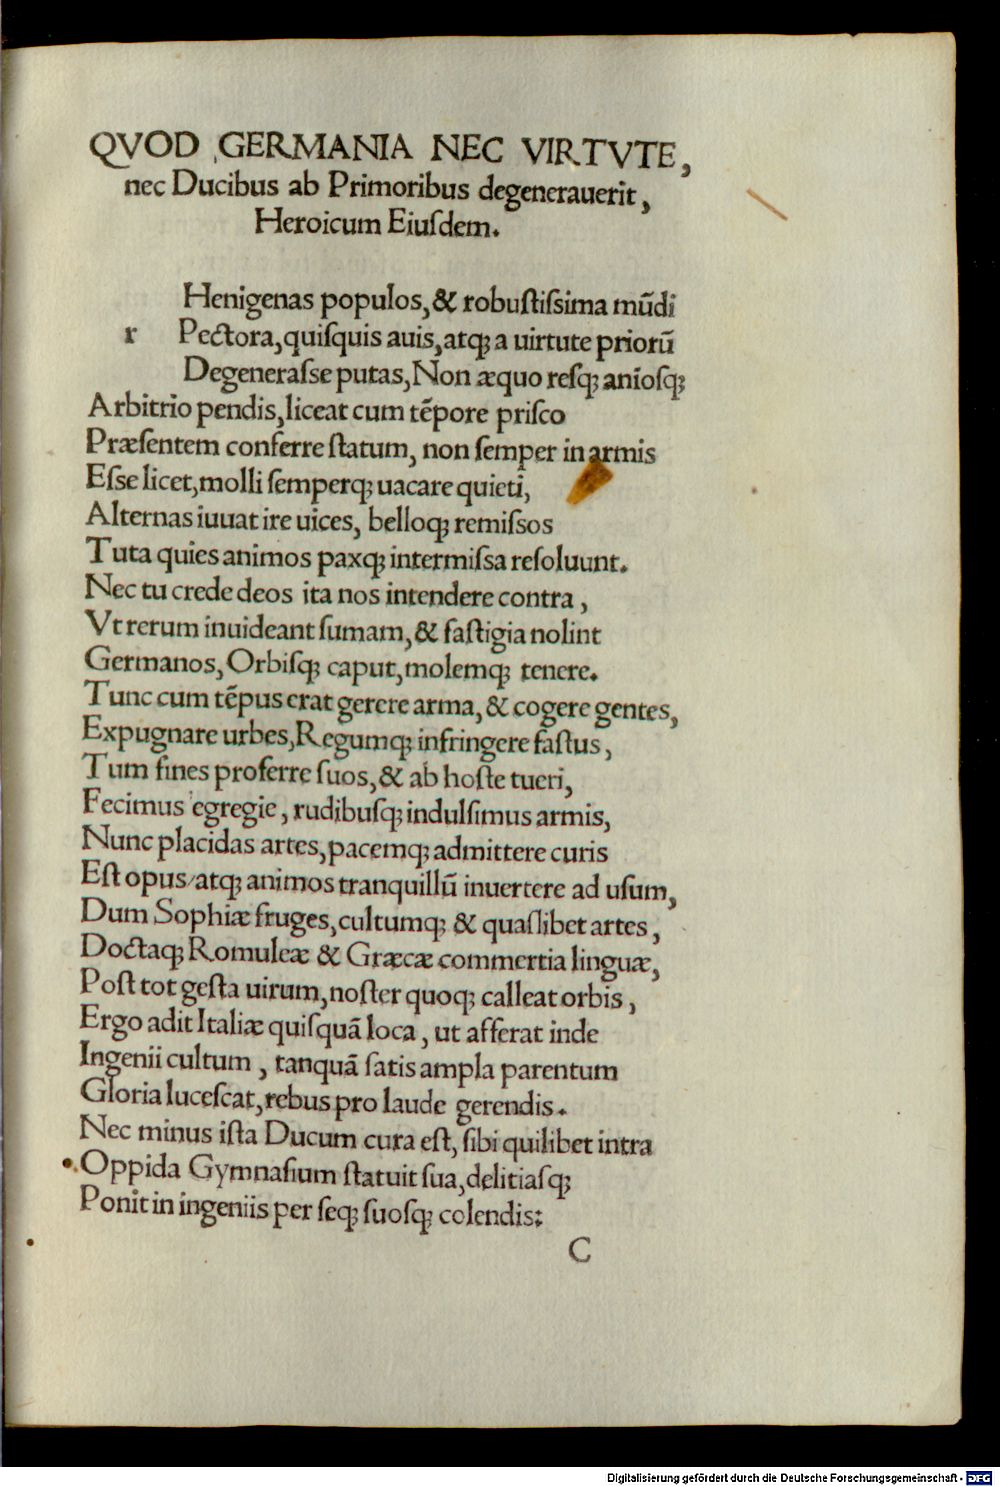 QVOD GERMANIA NEC VIRTVTE,
nec Ducibus ab Primoribus degenerauerit,
Heroicum Eiuſdem.
Henigenas populos, & robuſtiſsima mūdi
r Pectora, quiſquis auis, atqꝫ a uirtute priorū
Degeneraſse putas, Non æquo reſqꝫ anioſqꝫ
Arbitrio pendis, liceat cum tēpore priſco
Præſentem conferre ſtatum, non ſemper in armis
Eſse licet, molli ſemperqꝫ uacare quieti,
Alternas iuuat ire uices, belloqꝫ remiſsos
Tuta quies animos paxqꝫ intermiſsa reſoluunt.
Nec tu crede deos ita nos intendere contra,
Vt rerum inuideant ſumam, & faſtigia nolint
Germanos, Orbiſqꝫ caput, molemqꝫ tenere.
Tunc cum tēpus erat gerere arma, & cogere gentes,
Expugnare urbes, Regumqꝫ infringere faſtus,
Tum fines proferre ſuos, & ab hoſte tueri,
Fecimus egregie, rudibuſqꝫ indulſimus armis,
Nunc placidas artes, pacemqꝫ admittere curis
Eſt opus/atqꝫ animos tranquillū inuertere ad uſum,
Dum Sophiæ fruges, cultumqꝫ & quaſlibet artes,
Doctaqꝫ Romuleæ & Græcæ commertia linguæ,
Poſt tot geſta uirum, noſter quoqꝫ calleat orbis,
Ergo adit Italiæ quiſquā loca, ut afferat inde
Ingenii cultum, tanquā ſatis ampla parentum
Gloria luceſcat, rebus pro laude gerendis.
Nec minus iſta Ducum cura eſt, ſibi quilibet intra
Oppida Gymnaſium ſtatuit ſua, delitiaſqꝫ
Ponit in ingeniis per ſeqꝫ ſuoſqꝫ colendis:
C
Digitalisierung gefördert durch die Deutsche Forschungsgemeinschaft - DFG